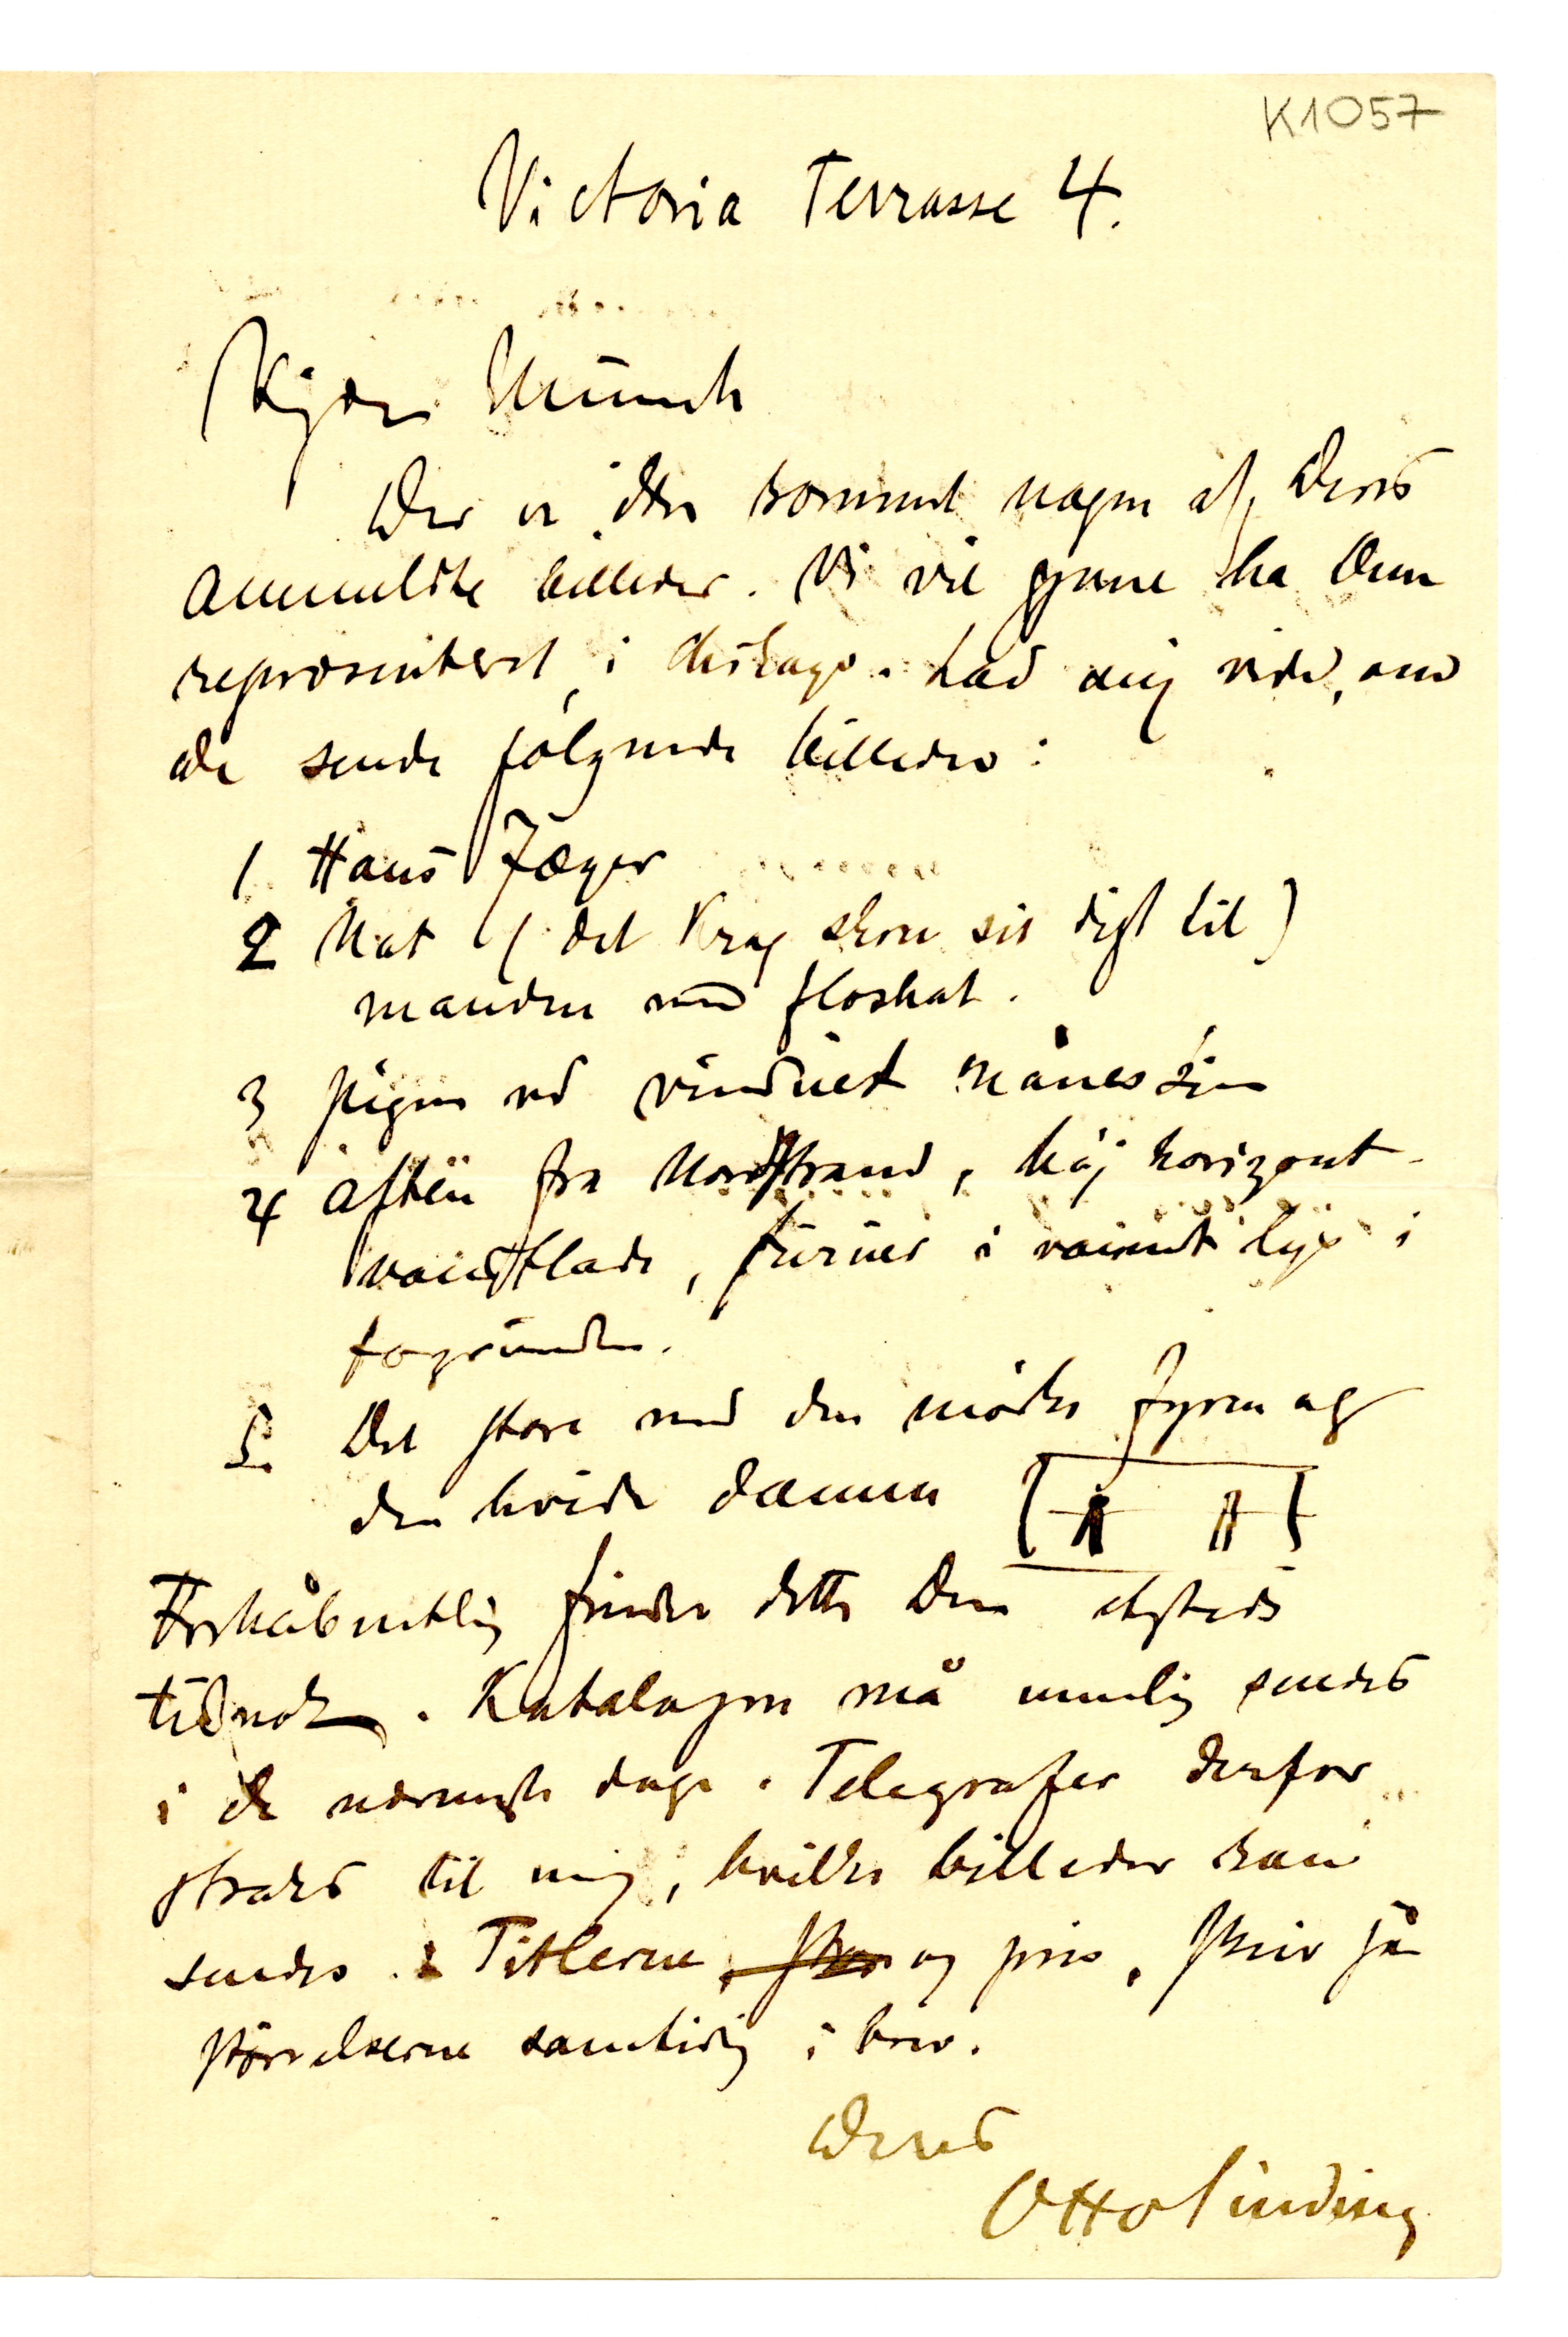 K1057
Victoria Terrasse 4.
Kjære Munch
Der er ikke kommet nogen af Deres
anmeldte billeder. Vi vil gjerne ha Dem
repræsenteret i Chikago. Lad mig vide, om
De sende følgende billeder:
1 Hans Jæger
2 Nat (det Krag skrev sit digt til)
manden med floshat.
3 Pigen ved vinduet måneskin
4 Aften fra Nordstrand, høj horizont
vandflade, furuer i lys i
forgrunden.
5. Det store med den mørke fyren og
den hvide damen
Forhåbentlig finder dette Dem etsteds
tidnok. Katalogen må nemlig sendes
i de nærmeste dage. Telegrafer derfor
straks til mig, hvilke billeder kan
sendes. Titlerne, og pris, skriv så
størrelserne samtidig i brev.
Deres
Otto Sinding